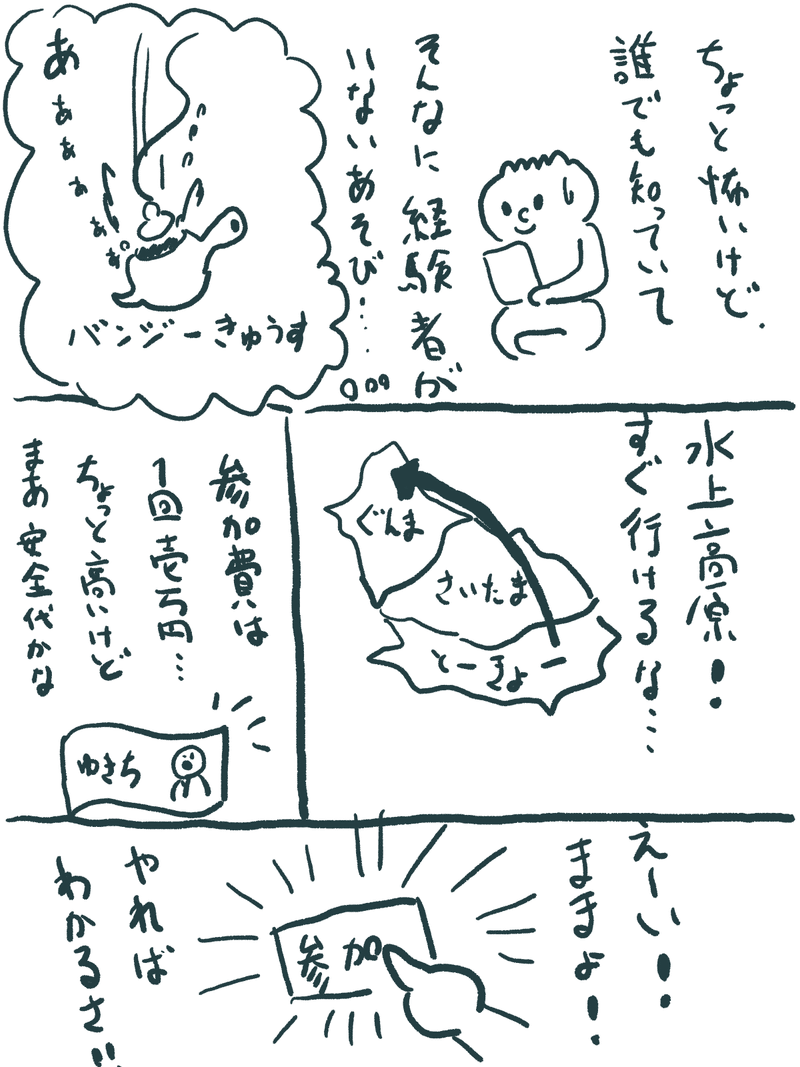 ちょっと怖いけど、
誰でも知っていて
そんなに経験者が
いないあそび……
あぁぁぁぁぁ
バンジーきゅうす
水上高原！
すぐ行けるな…
ぐんま
さいたま
とーきょー
参加費は
1回壱万円…
ちょっと高いけど
まあ安全代かな
ゆきち
えーい！
ままよ！
参加
やれば
わかるさ!!